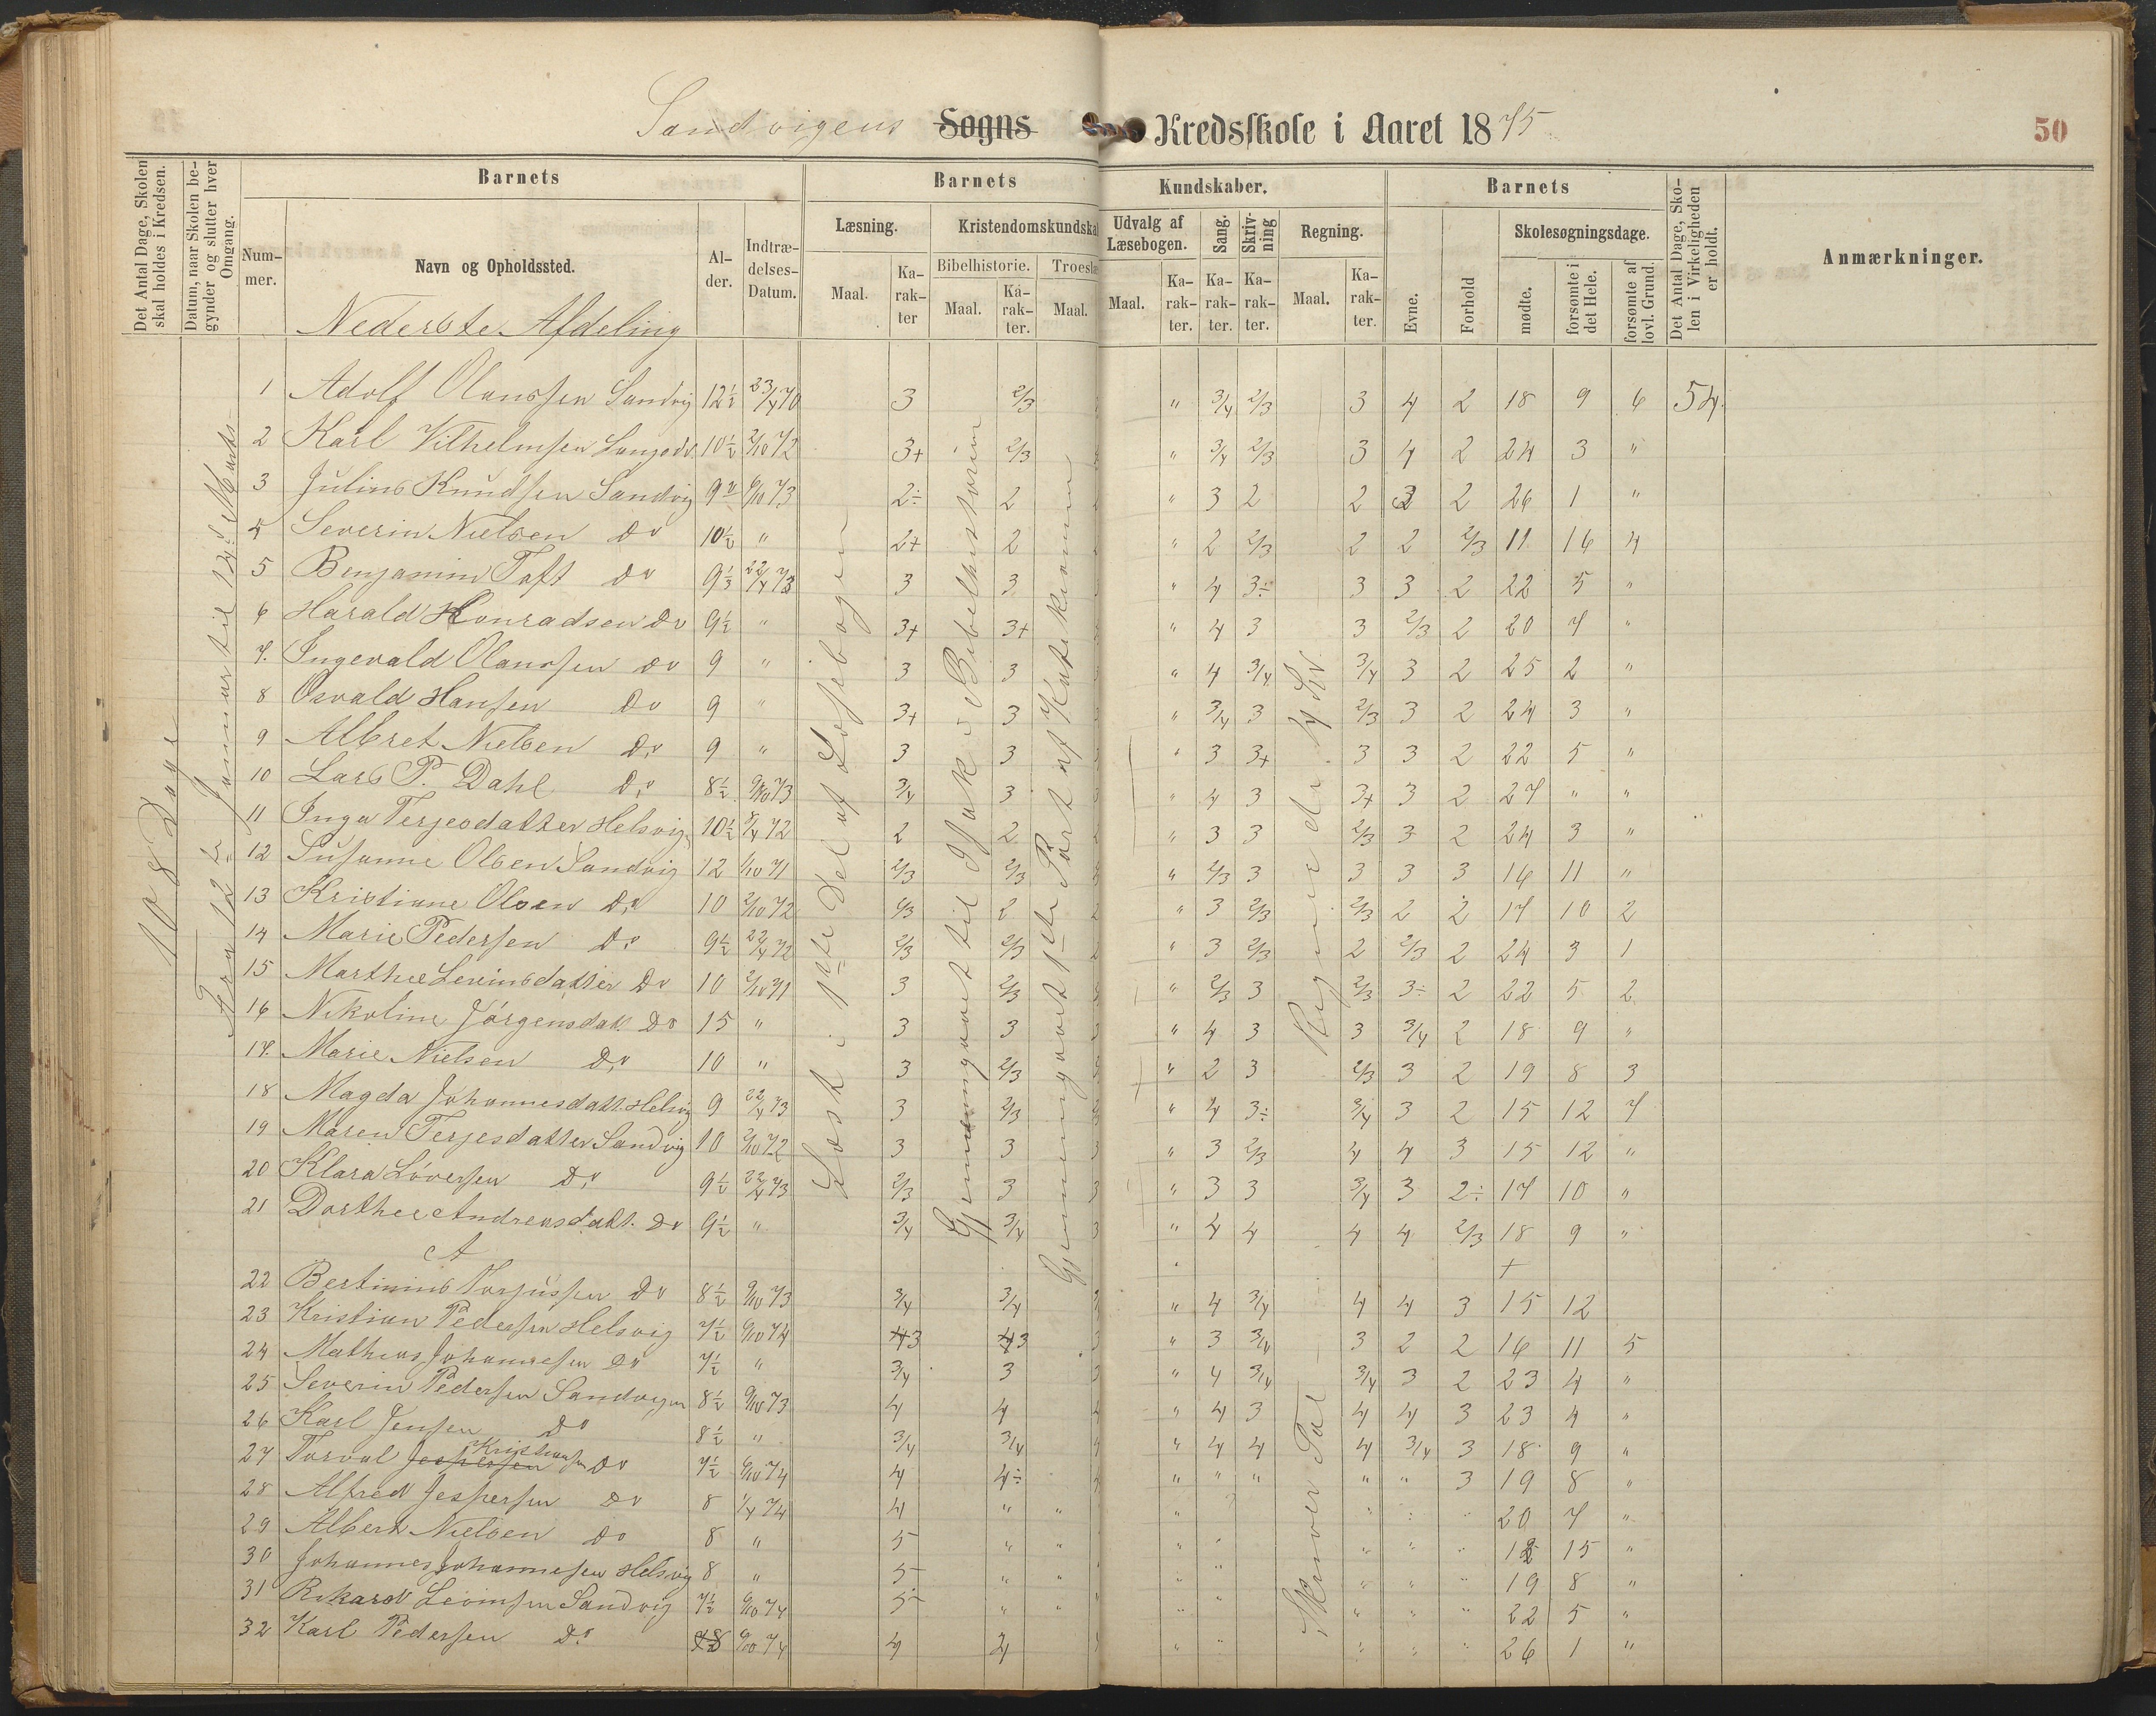 Sandvigens Sogns Kredsskole i Aaret 1875
50
Det Antal Dage, Skolen skal holdes i Kredsen.
Datum, naar Skolen begynder og slutter hver Omgang.
Barnets
Nummer.
Navn og Opholdssted.
Alder.
Indtrædelses-Datum.
Barnets
Læsning.
Maal.
Karakter
Kristendomskundskab
Bibelhistorie.
Maal.
Karakter.
Troeslæ
Maal.
Kundskaber.
Udvalg af Læsebogen.
Maal.
Karakter.
Sang.
Karakter.
Skrivning
Karakter.
Regning.
Maal.
Karakter.
Barnets
Evne.
Forhold
Skolesøgningsdage.
mødte.
forsømte i det Hele.
forsømte af lovl. Grund.
Det Antal Dage, Skolen i Virkeligheden er holdt.
Anmærkninger.
Nederste Afdeling
108 Dage
Fra 12te Januar til 12te Marts
Læst i 1ste Del af Læsebogen
Gjennemgaaet til Isak i Bibelhistorien
Gjennemgaaet 1ste Part af Katekismen
Regne de
Skriver Tal
1 Adolf Olanssen Sandvig 12½ 23/4 70 3 2/3 " 3/4 2/3 3 4 2 18 9 6 54.
2 Karl Vilhelmsen 10½ 2/10 72 3+ 2/3 " 3/4 2/3 3 4 2 24 3 "
3 Julius Knudsen Sandvig 9 6/10 73 2÷ 2 " 3 2 2 3 2 26 1 "
4 Severin Nielsen Do 10½ " 2+ 2 " 2 2/3 2 2 2/3 11 16 4
5 Benjamin Toft do 9⅓ 22/4 73 3 3 " 4 3÷ 3 3 2 22 5 "
6 Harald Konradsen Do 9½ " 3+ 3+ " 4 3 3 2/3 2 20 7 "
7. Ingevald Olanssen Do 9 " 3 3 " 4 3/4 3/4 3 2 25 2 "
8 Osvald Hansen Do 9 " 3+ 3 " 3/4 3 2/3 3 2 24 3 "
9 Albret Nielsen Do 9 " 3 3 " 3 3+ 3 3 2 22 5 "
10 Lars P. Dahl Do 8½ 9/10 73 3/4 3 " 4 3 3+ 3 2 27 " "
11 Inga Terjesdatter Helsvig 10½ 8/4 72 2 2 " 3 3 2/3 3 2 24 3 "
12 Susanne Olsen Sandvig 12 1/10 71 2/3 2/3 " 2/3 3 3 3 3 16 11 "
13 Kristiane Olsen Do 10 2/10 72 2/3 2 " 3 2/3 2/3 2 2 17 10 2
14 Marie Pedersen Do 9½ 22/4 72 2/3 2/3 " 3 2/3 2 2/3 2 24 3 1
15 Marthee Levinsdatter Do 10 2/10 71 3 2/3 " 2/3 3 2/3 3÷ 2 22 5 2
16 Nikoline Jörgensdatt. Do 15 " 3 3 " 4 3 3 3/4 2 18 9 "
17. Marie Nielsen Do 10 " 3 2/3 " 2 3 2/3 3 2 19 8 3
18 Magda Johannesdatt. Helsvig 9 22/4 73 3 2/3 " 4 3÷ 3/4 3 2 15 12 7
19 Maren Terjesdatter Sandvig 10 2/10 72 3 3 " 3 2/3 4 4 3 15 12 "
20 Klara Löversen Do 9½ 22/4 73 2/3 3 " 3 3 3/4 3 2÷ 17 10 "
21 Dorthee Andreasdatt. Do 9½ " 3/4 3/4 " 4 4 4 4 2/3 18 9 "
A
+
22 Bertinius Do 8½ 9/10 73 3/4 3/4 " 4 3/4 4 4 3 15 12
23 Kristian Pedersen Helsvig 7½ 6/10 74 3 3 " 3 3/4 3 2 2 16 11 5
24 Mathias Johannesen Do 7½ " 3/4 3 " 4 3/4 3/4 3 2 23 4 "
25 Severin Pedersen Sandvigen 8½ 9/10 73 4 4 " 4 3 4 4 3 23 4 "
26 Karl Jensen Do 8½ " 3/4 3/4 " 4 4 4 3/4 3 18 9 "
27 Torval Jespersen Kristiansen Do 7½ 6/10 74 4 4÷ " " " " " 3 19 8 "
28 Alfred Jespersen Do 8 1/4 74 4 " " " " " " 20 7 "
29 Albert Nielsen Do 8 " 5 " " " " " " " 12 15 "
30 Johannes Johannesen Helsvig 8 " 5 " " " " " " " 19 8 "
31 Rikard Levinsen Sandvig 7½ 6/10 74 5 " " " " " " " 22 5 "
32 Karl Pedersen Do 8 6/10 74 4 4 " " " " " 26 1 "